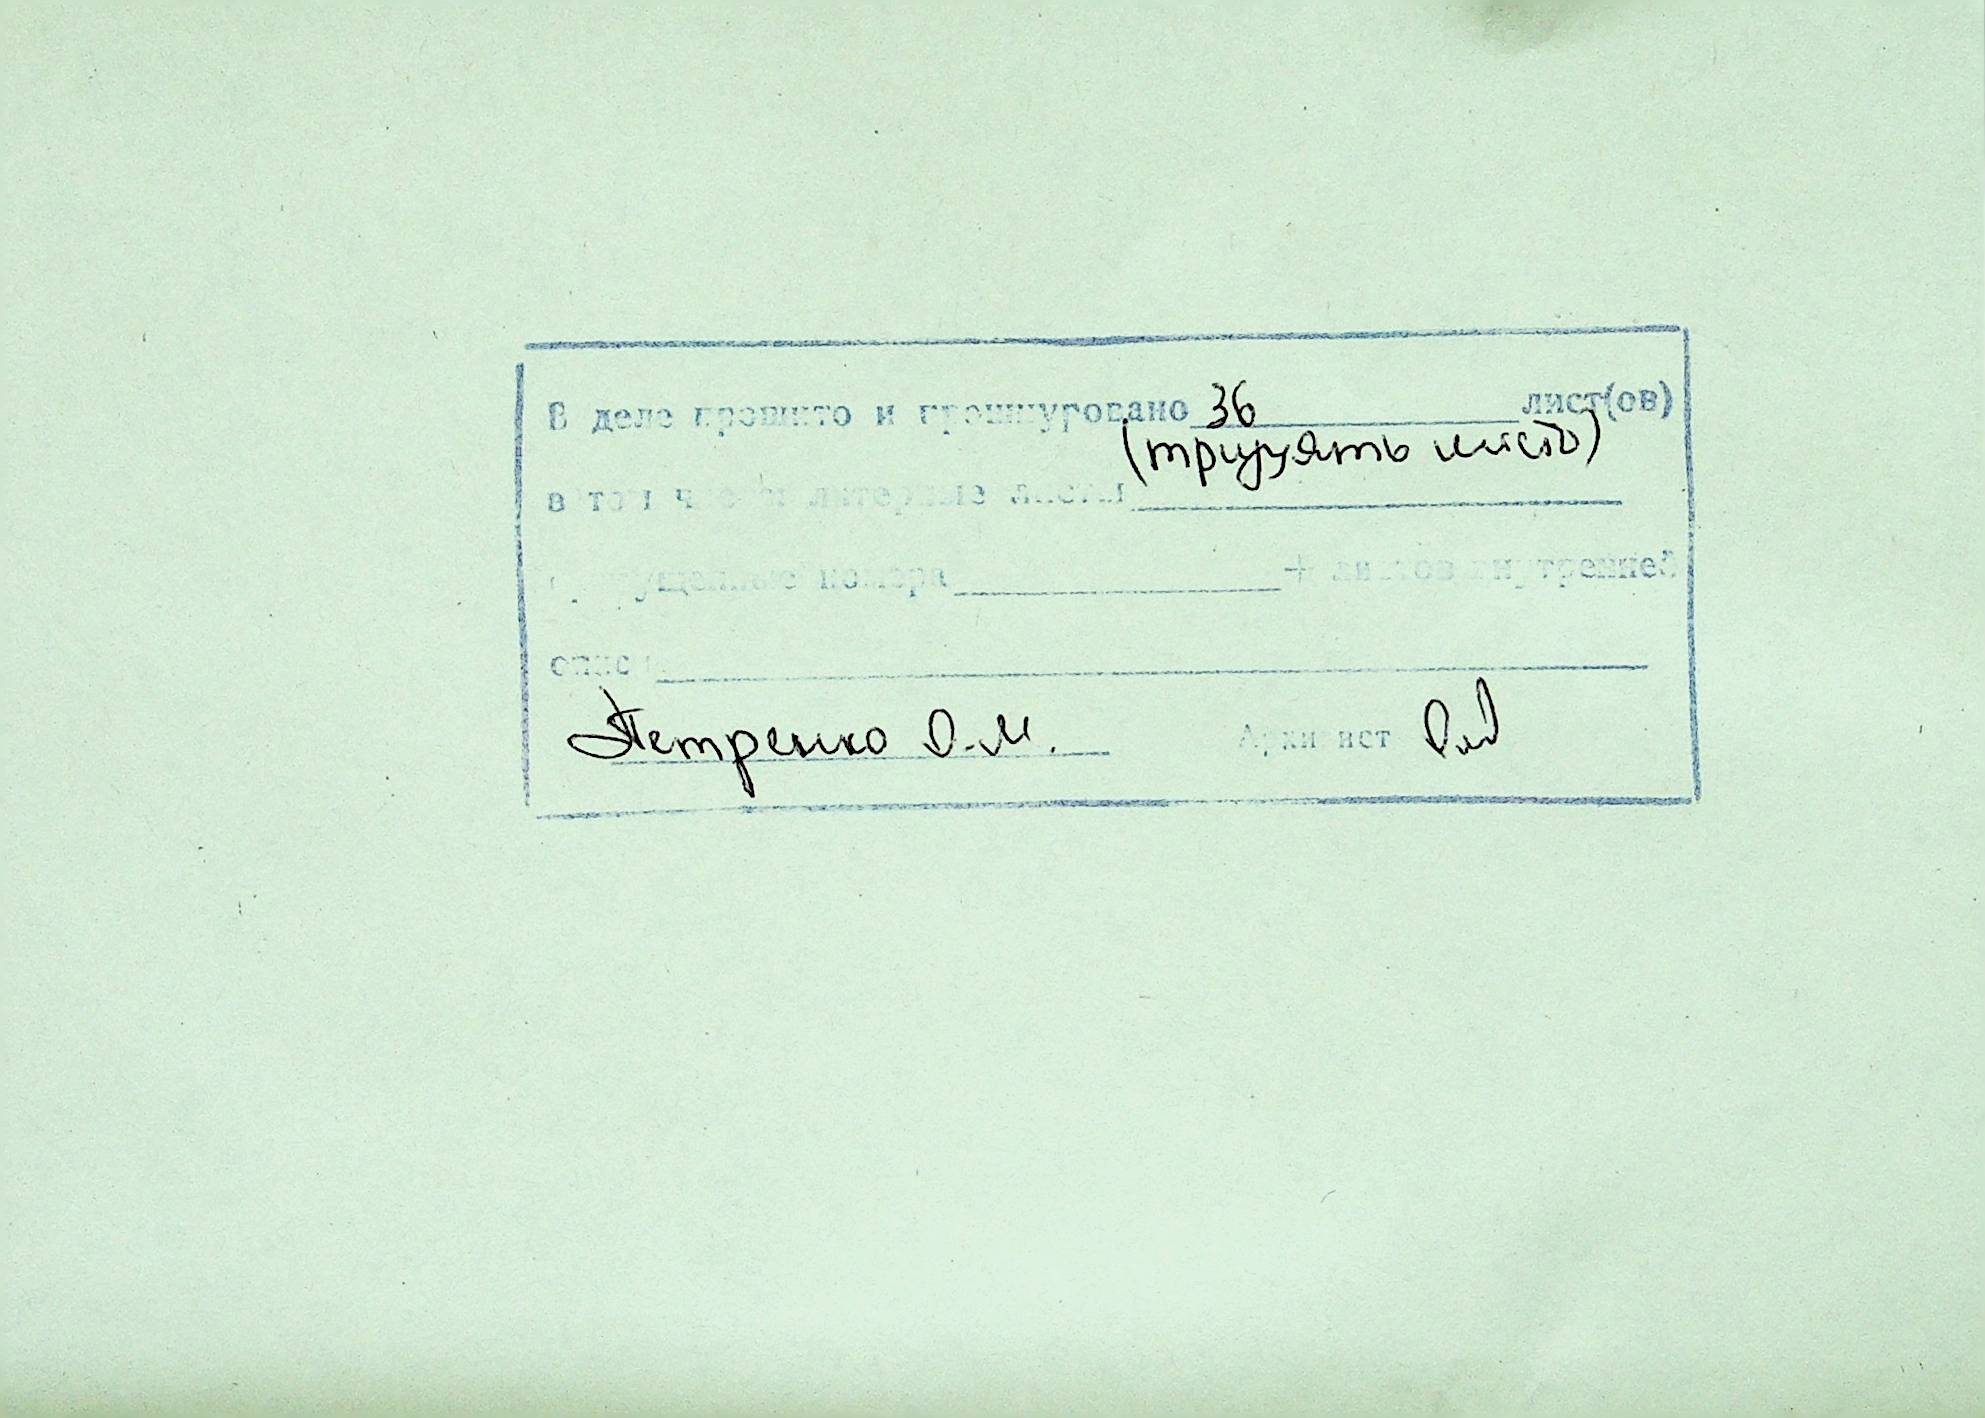 В деле прошито и прошнуровано 36 лист(ов)
(тридцять шість)
в том числе литерные листы
пропущенные номера + листов внутренней
описи
Петренко О.М. Архивист